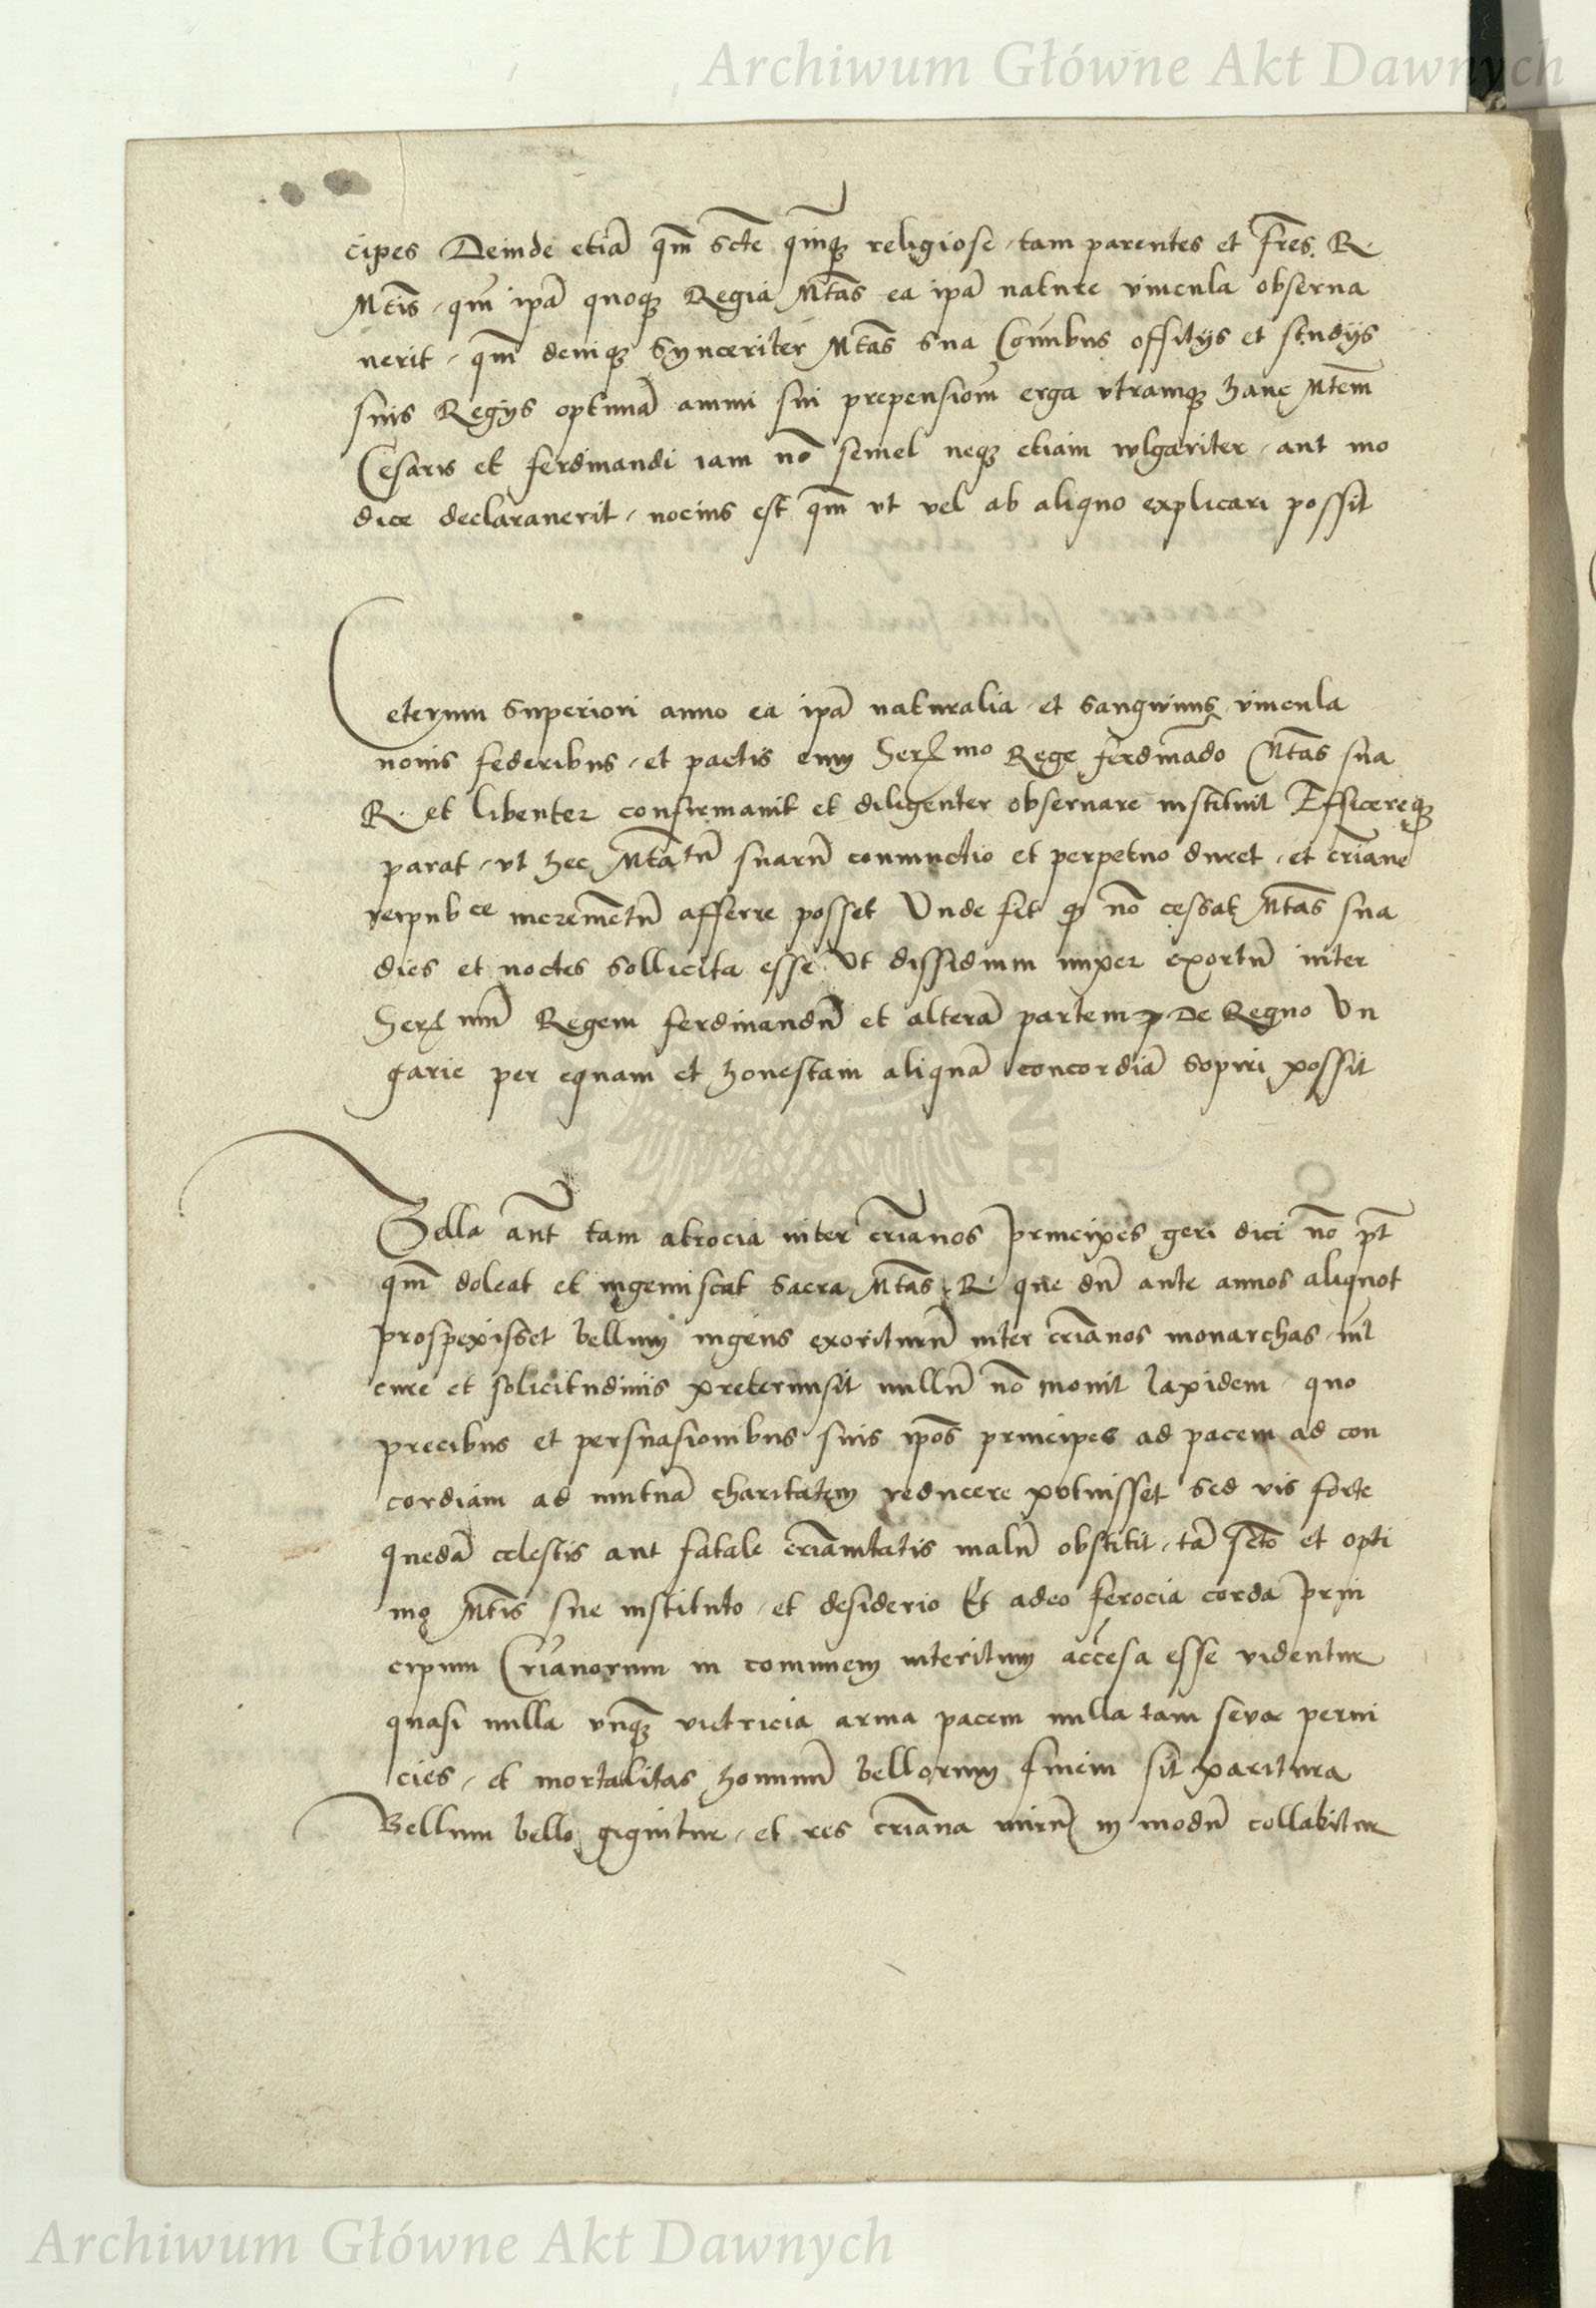 Archiwum Główne Akt Dawnych
cipes Deinde etiã qm̃ scte qmq̃ religiose, tam parentes et fr̃es R.
Mtis, qm̃ ipã quoq̃ Regia Mtãs ea ipã nature vincula obserua
uerit, qm̃ deniq̃ synceriter Mtãs sua Coĩnbus offitijs et studijs
suis Regijs optimã animi sui prepensionẽ erga vtramq̃ hanc Mtẽm
Cesaris et ferdinandi iam nõ semel neq̃ etiam wlgariter, aut mo
dice declarauerit, nocius est qm̃ vt vel ab aliquo explicari possit
Ceterum superiori anno ea ipã naturalia et sanguinis vincula
nouis federibus, et pactis cum Ser mo Rege ferdinãdo Mtãs sua
R. et libenter confirmauit et diligenter obseruare instituit Efficereq̃
parat, vt hec Mtãtũ suarũ coniunctio et perpetuo duret, et cr̃iane
reipub ce incremẽtũ afferre posset Vnde fit q̃ nõ cessat Mtãs sua
dies et noctes sollicita esse Vt dissidium nuper exortũ inter
Ser mũ Regem ferdinandũ et alterã partem p De Regno Vn
garie per equam et honestam aliquã concordiã sopiri possit
Bella aũt tam atrocia inter cr̃ianos principes geri dici nõ pt̃
qm̃ doleat et ingemiscat Sacra Mtãs R. que dũ ante annos aliquot
prospexisset bellum ingens exoriturũ inter cr̃ianos monarchas, nil
cure et solicitudinis pretermisit nullũ nõ mouit lapidem quo
precibus et persuasionibus suis ip̃os principes ad pacem ad con
cordiam ad mutuã charitatem reducere potuisset Sed vis forte
quedã celestis aut fatale cr̃ianitatis malũ obstitit, tã scto et opti
mo Mtis sue instituto, et desiderio Et adeo ferocia corda prin
cipum Cr̃ianorum in communem interitum accẽsa esse videntur
quasi nulla vnq̃ victricia arma pacem nulla tam seva perni
cies, et mortalitas hominũ bellorum finem sit paritura
Bellum bello gignitur, et res cr̃iana mirũ in modũ collabitur
Archiwum Główne Akt Dawnych